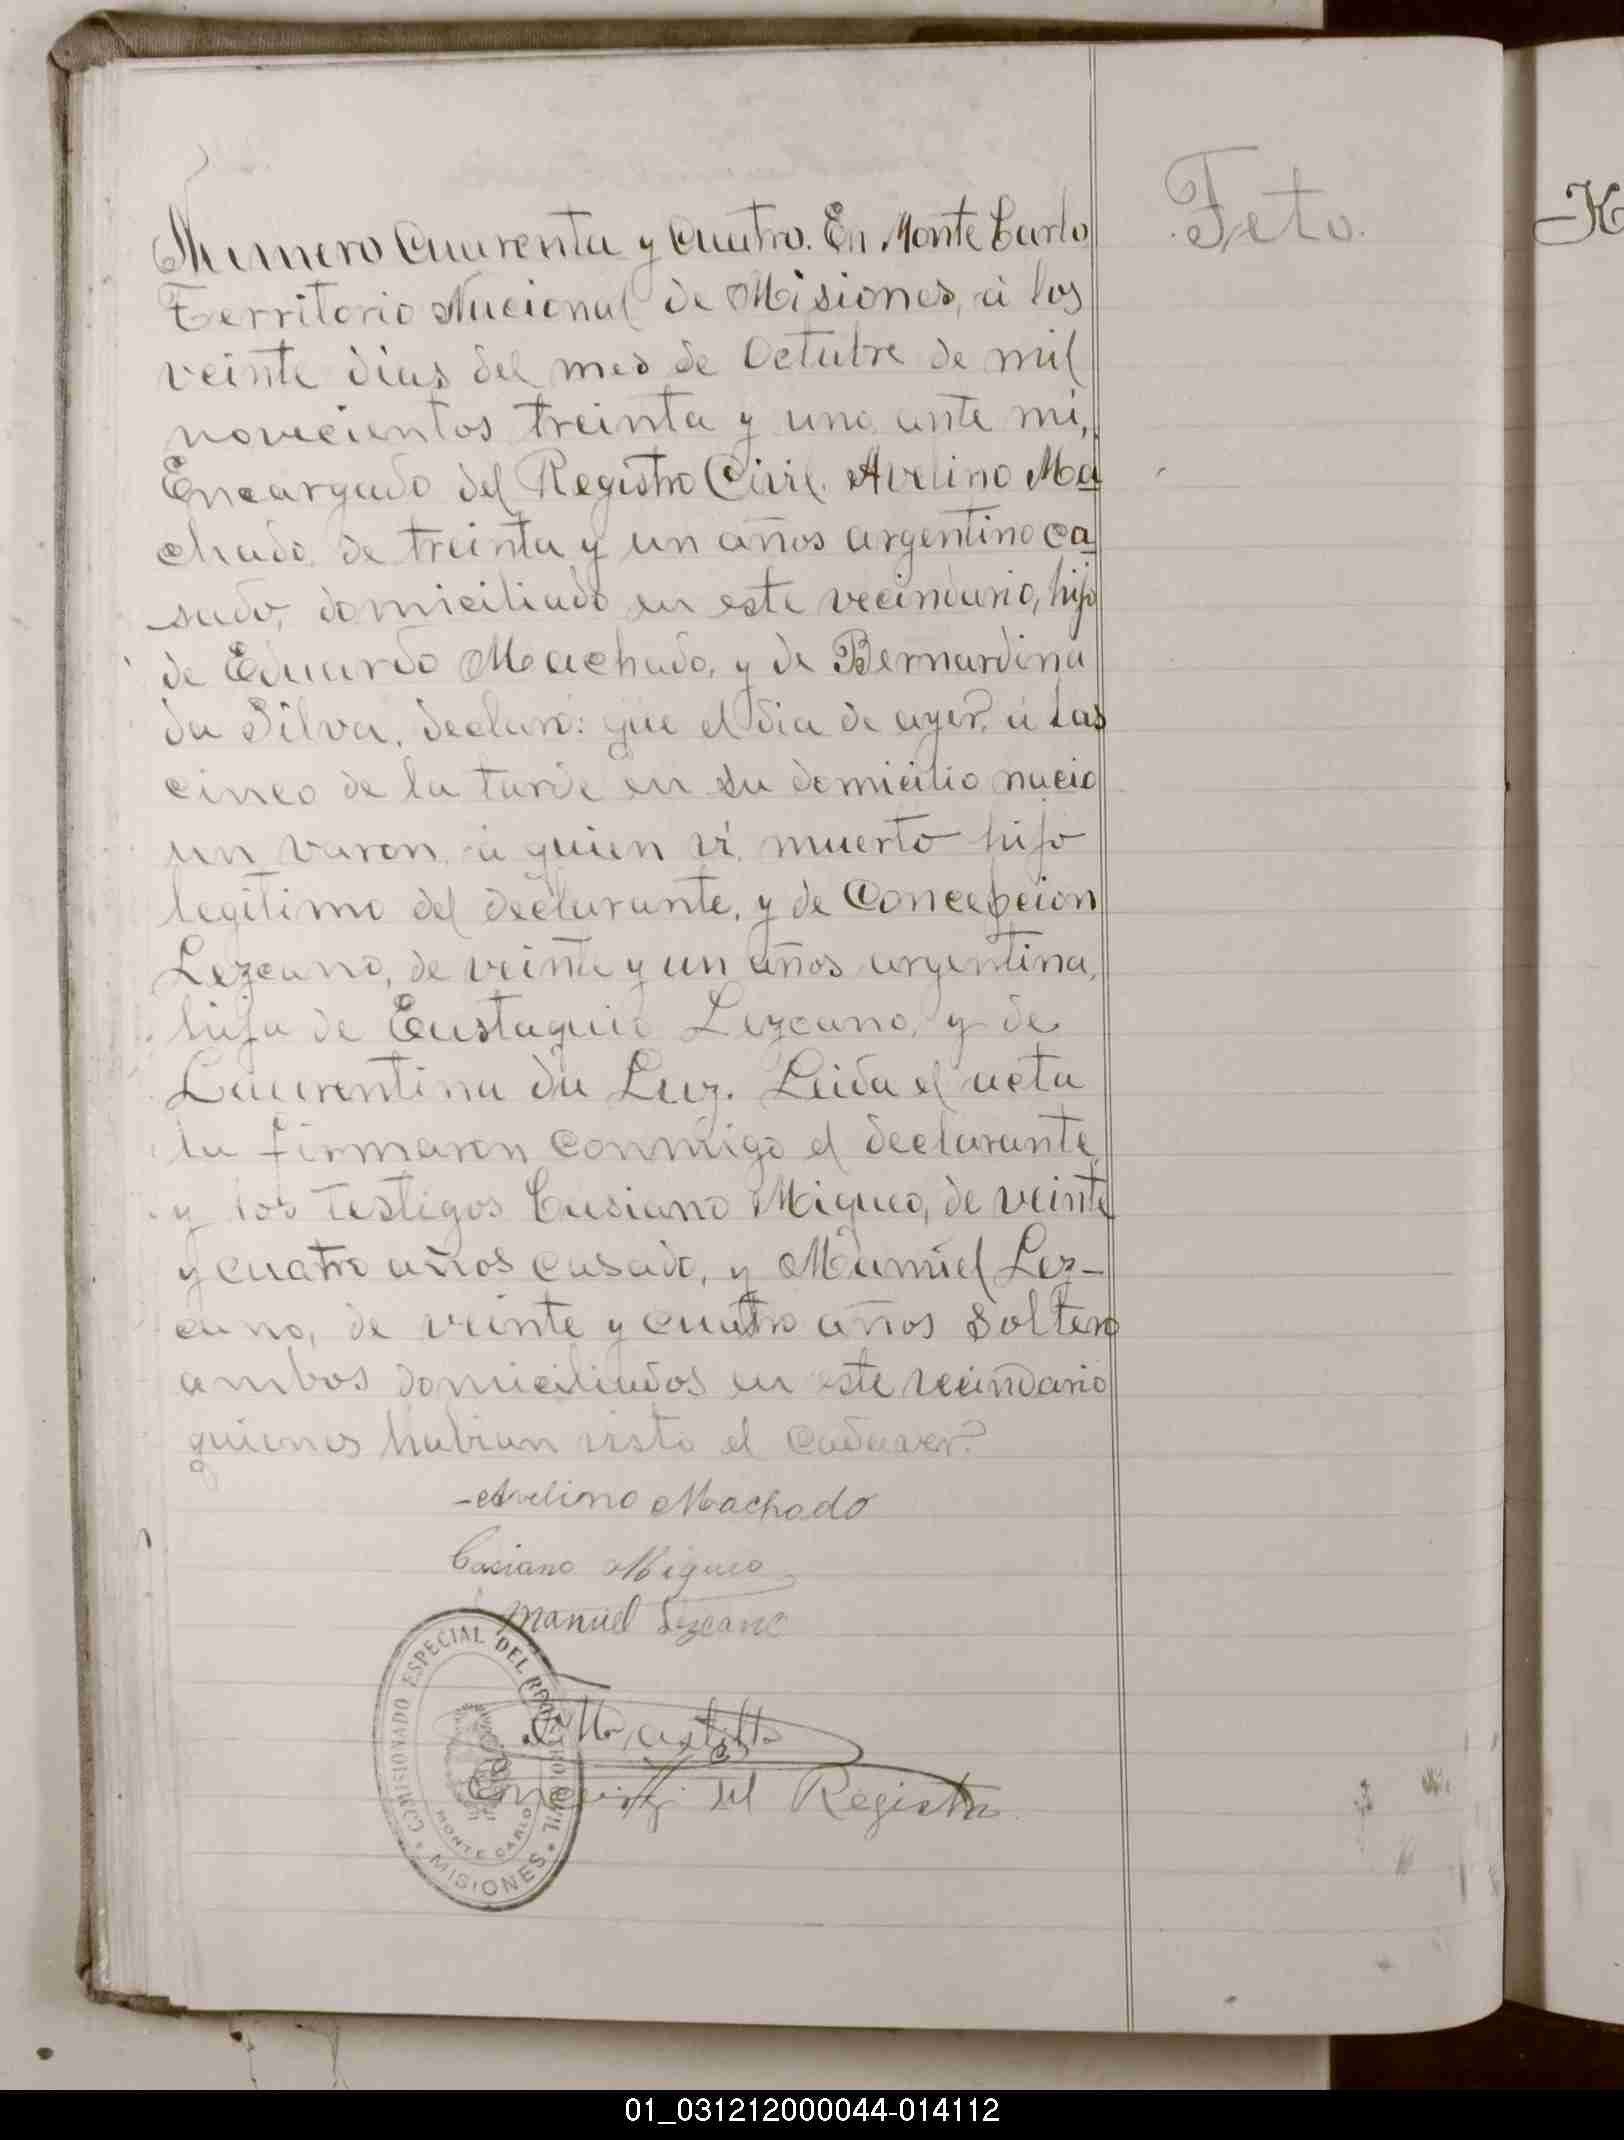 Feto.
K
Numero Cuarenta y Cuatro. En Monte Carlo
Territorio Nacional de Misiones, á los
veinte dias del mes de Octubre de mil
novecientos treinta y uno ante mi,
Encargado del Registro Civil. Avelino Ma
chado de treinta y un años argentino ca
sado, domiciliado en este vecindario, hijo
de Eduardo Machado, y de Bernardina
da Silva, declaró: que el dia de ayer á las
cinco de la tarde en su domicilio nacio
un varon á quien ví muerto hijo
legitimo del declarante, y de Concepcion
Lezcano, de veinte y un años argentina,
hija de Eustaquio Lezcano, y de
Laurentina da Luz. Leida el acta
la firmaron conmigo el declarante
y los testigos Casiano Miqueo, de veinte
y cuatro años casado, y Manuel Lez-
cano, de veinte y cuatro años soltero
ambos domiciliados en este vecindario
quienes habian visto el cadaver.
Avelino Machado
Casiano Miqueo
Manuel Lezcano
COMISIONADO ESPECIAL DEL REGISTRO CIVIL
MONTE CARLO
MISIONES
del Registro
01_031212000044-014112